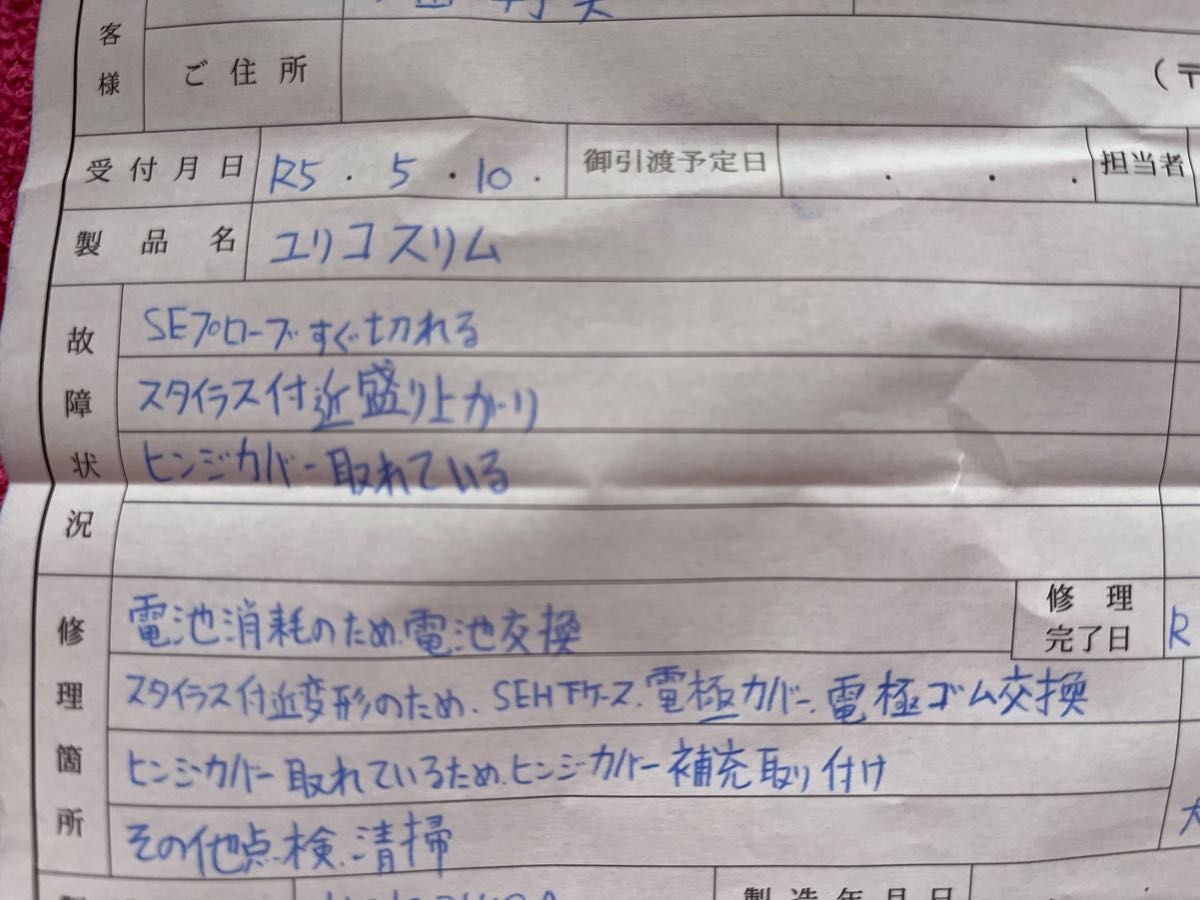 客様
ご住所
(〒
受付月日 R5 . 5 . 10 . 御引渡予定日 . . . 担当者
製品名 ユリコスリム
故障状況
SEプローブすぐ切れる
スタイラス付近盛り上がり
ヒンジカバー取れている
修理箇所
電池消耗のため、電池交換
修理完了日 R
スタイラス付近変形のため、SEH下ケース、電極カバー、電極ゴム交換
ヒンジカバー取れているため、ヒンジカバー補充取り付け
その他点検、清掃
製造年月日